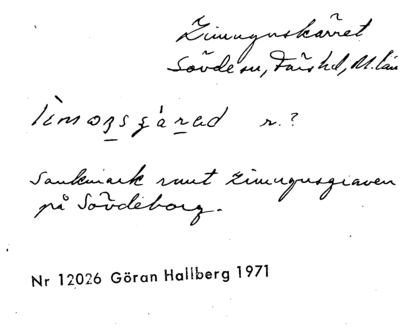 Limugnskärret
Sövde sn, Färs hd, M. län
n. ?
Sankmark runt Limugnsgraven
på Sövdeborg.
Nr 12026 Göran Hallberg 1971